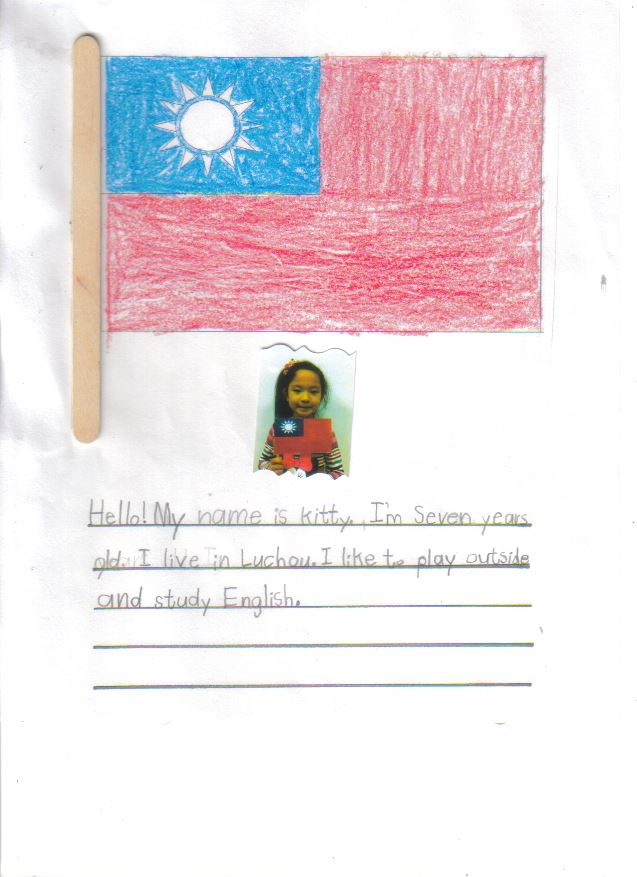 Hello! My name is kitty. I'm Seven years
old. I live in Luchou. I like to play outside
and study English.